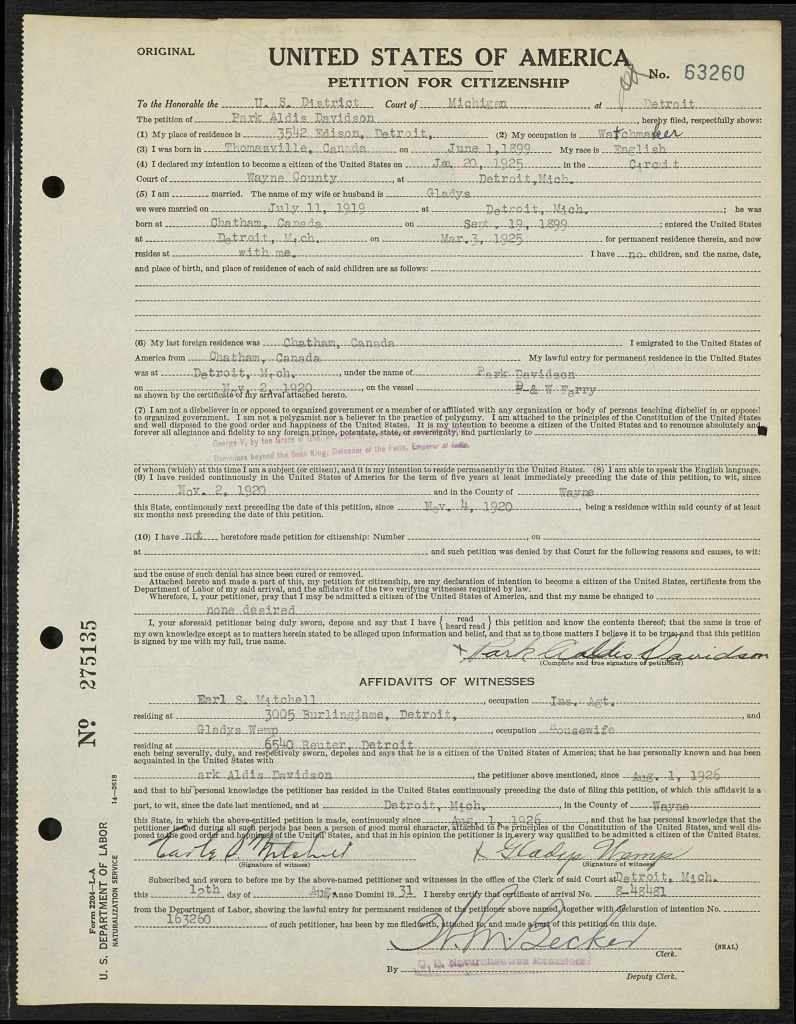 ORIGINAL
UNITED STATES OF AMERICA
PETITION FOR CITIZENSHIP
No. 63260
To the Honorable the U. S. District Court of Michigan at Detroit
The petition of Park Aldis Davidson, hereby filed, respectfully shows:
(1) My place of residence is 3542 Edison, Detroit, (2) My occupation is Watchmaker
(3) I was born in Thomasville, Canada on June 1,1899 My race is English
(4) I declared my intention to become a citizen of the United States on Jan 20, 1925 in the Circuit
Court of Wayne County, at Detroit,Mich.
(5) I am married. The name of my wife or husband is Gladys
we were married on July 11, 1919 at Detroit, Mich.; he was
born at Chatham, Canada on Sept. 19, 1899; entered the United States
at Detroit, Mich. on Mar.3, 1925 for permanent residence therein, and now
resides at with me. I have no children, and the name, date,
and place of birth, and place of residence of each of said children are as follows:
(6) My last foreign residence was Chatham, Canada I emigrated to the United States of
America from Chatham, Canada My lawful entry for permanent residence in the United States
was at Detroit, Mich., under the name of Park Davidson
on Nov. 2, 1920, on the vessel D & W Ferry
as shown by the certificate of my arrival attached hereto.
(7) I am not a disbeliever in or opposed to organized government or a member of or affiliated with any organization or body of persons teaching disbelief in or opposed
to organized government. I am not a polygamist nor a believer in the practice of polygamy. I am attached to the principles of the Constitution of the United States
and well disposed to the good order and happiness of the United States. It is my intention to become a citizen of the United States and to renounce absolutely and
forever all allegiance and fidelity to any foreign prince, potentate, state, or sovereignty, and particularly to
George V, by the Grace of God,
Dominions beyond the Seas King, Defender of the Faith, Emperor of India.
of whom (which) at this time I am a subject (or citizen), and it is my intention to reside permanently in the United States. (8) I am able to speak the English language.
(9) I have resided continuously in the United States of America for the term of five years at least immediately preceding the date of this petition, to wit, since
Nov. 2, 1920 and in the County of Wayne
this State, continuously next preceding the date of this petition, since Nov. 4, 1920, being a residence within said county of at least
six months next preceding the date of this petition.
(10) I have not heretofore made petition for citizenship: Number, on
at and such petition was denied by that Court for the following reasons and causes, to wit:
and the cause of such denial has since been cured or removed.
Attached hereto and made a part of this, my petition for citizenship, are my declaration of intention to become a citizen of the United States, certificate from the
Department of Labor of my said arrival, and the affidavits of the two verifying witnesses required by law.
Wherefore, I, your petitioner, pray that I may be admitted a citizen of the United States of America, and that my name be changed to
none desired
I, your aforesaid petitioner being duly sworn, depose and say that I have { read heard read } this petition and know the contents thereof; that the same is true of
my own knowledge except as to matters herein stated to be alleged upon information and belief, and that as to those matters I believe it to be true; and that this petition
is signed by me with my full, true name.
x Park Aldis Davidson
(Complete and true signature of petitioner)
AFFIDAVITS OF WITNESSES
Earl S. Mitchell, occupation Ins. Agt.
residing at 3005 Burlingjame, Detroit, and
Gladys Wemp, occupation housewife
residing at 6540 Reuter, Detroit
each being severally, duly, and respectively sworn, deposes and says that he is a citizen of the United States of America; that he has personally known and has been
acquainted in the United States with
ark Aldis Davidson, the petitioner above mentioned, since Aug. 1, 1926
and that to his personal knowledge the petitioner has resided in the United States continuously preceding the date of filing this petition, of which this affidavit is a
part, to wit, since the date last mentioned, and at Detroit, Mich., in the County of Wayne
this State, in which the above-entitled petition is made, continuously since Aug. 1, 1926, and that he has personal knowledge that the
petitioner is and during all such periods has been a person of good moral character, attached to the principles of the Constitution of the United States, and well dis-
posed to the good order and happiness of the United States, and that in his opinion the petitioner is in every way qualified to be admitted a citizen of the United States.
Earl S Mitchell x Gladys Wemp
(Signature of witness) (Signature of witness)
Subscribed and sworn to before me by the above-named petitioner and witnesses in the office of the Clerk of said Court at Detroit, Mich.
this 15th day of Aug, Anno Domini 1931 I hereby certify that certificate of arrival No. 8-48481
from the Department of Labor, showing the lawful entry for permanent residence of the petitioner above named, together with declaration of intention No.
163260 of such petitioner, has been by me filed with, attached to, and made a part of this petition on this date.
Becker
Clerk.
(SEAL)
By
Deputy Clerk.
No 275135
14—2618
Form 2204—L-A
U. S. DEPARTMENT OF LABOR
NATURALIZATION SERVICE